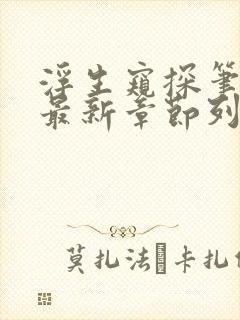 浮生窺探筆
最新章節列
莫扎法 卡扎